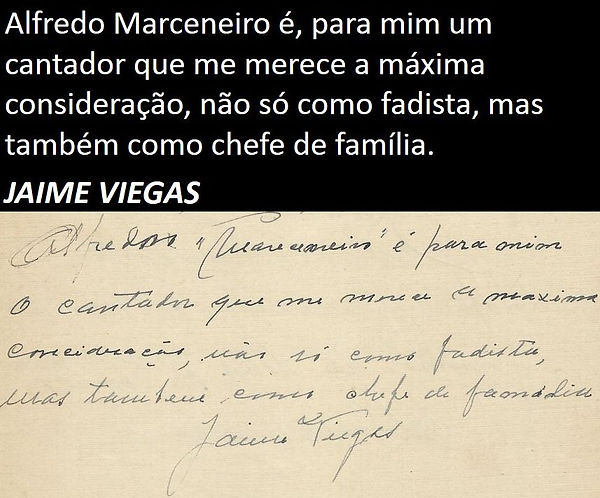 Alfredo Marceneiro é, para mim um
cantador que me merece a máxima
consideração, não só como fadista, mas
também como chefe de família.
JAIME VIEGAS
Alfredo "Marceneiro" é para mim
O cantador que me merece a maxima
concideração, não só como fadista,
mas tambem como chefe de familia
Jaime Viegas